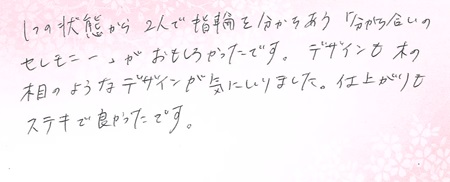 1つの状態から2人で指輪を分かちあう「分かち合いの
セレモニー」がおもしろかったです。デザインも木の
相のようなデザインが気にいりました。仕上がりも
ステキで良かったです。